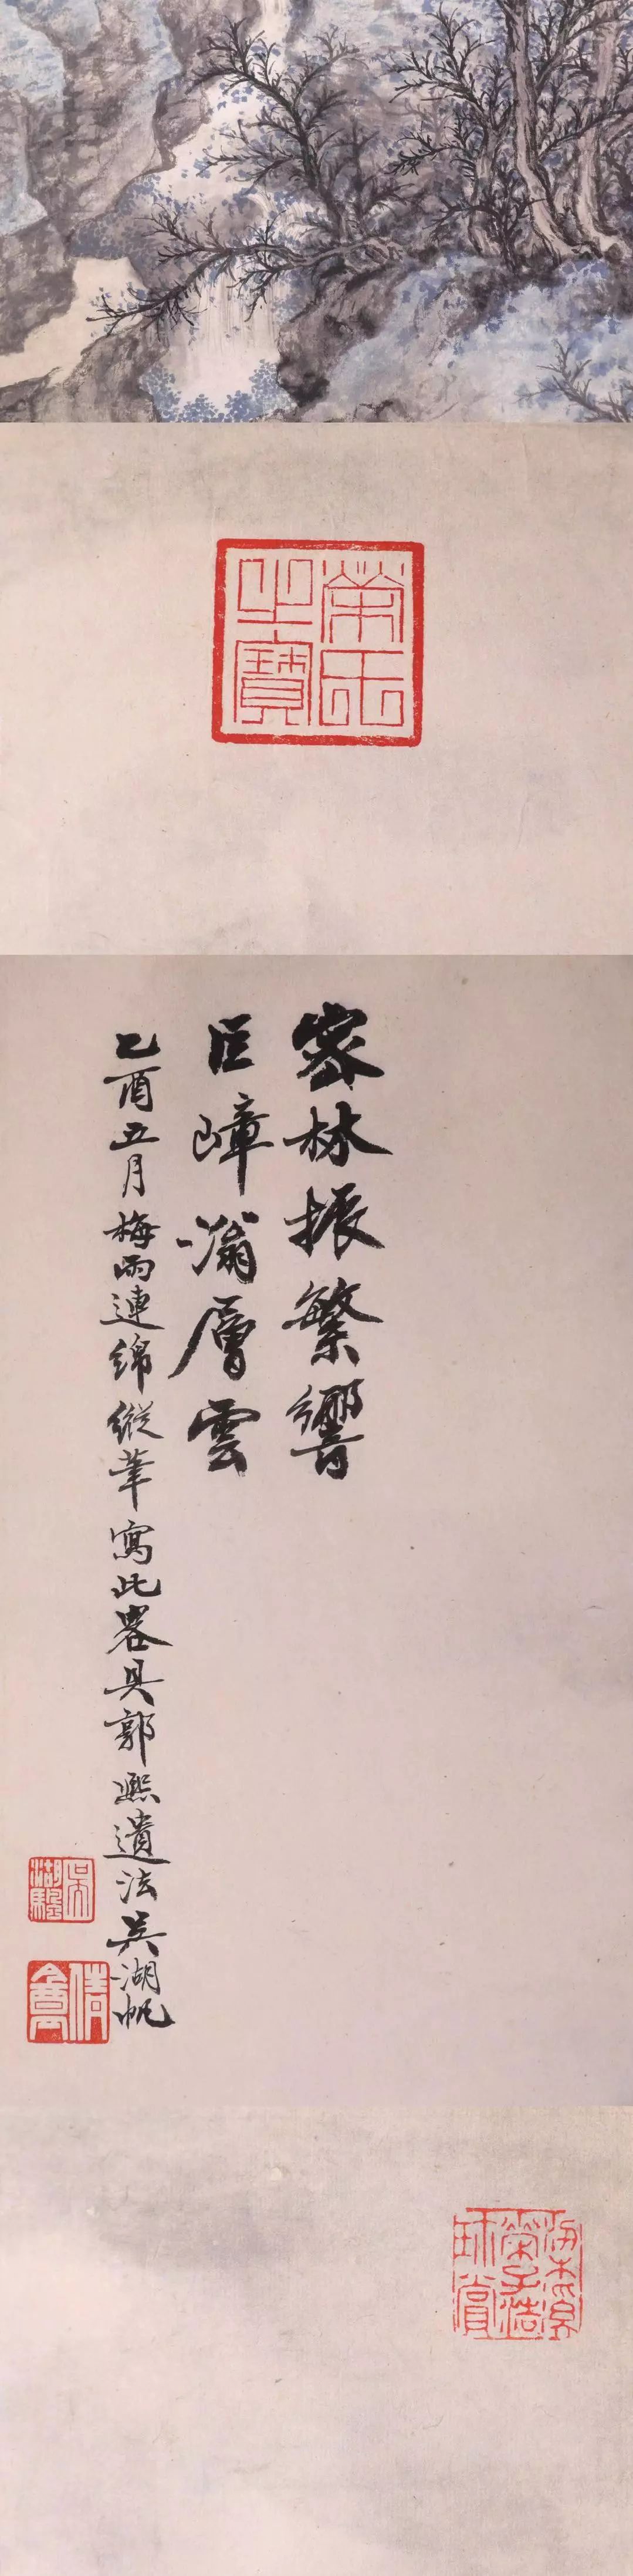 密林振繁響
巨嶂滃層雲
乙酉五月梅雨連綿縱筆寫此畧具郭熙遺法吳湖帆
吳湖颿
倩盦